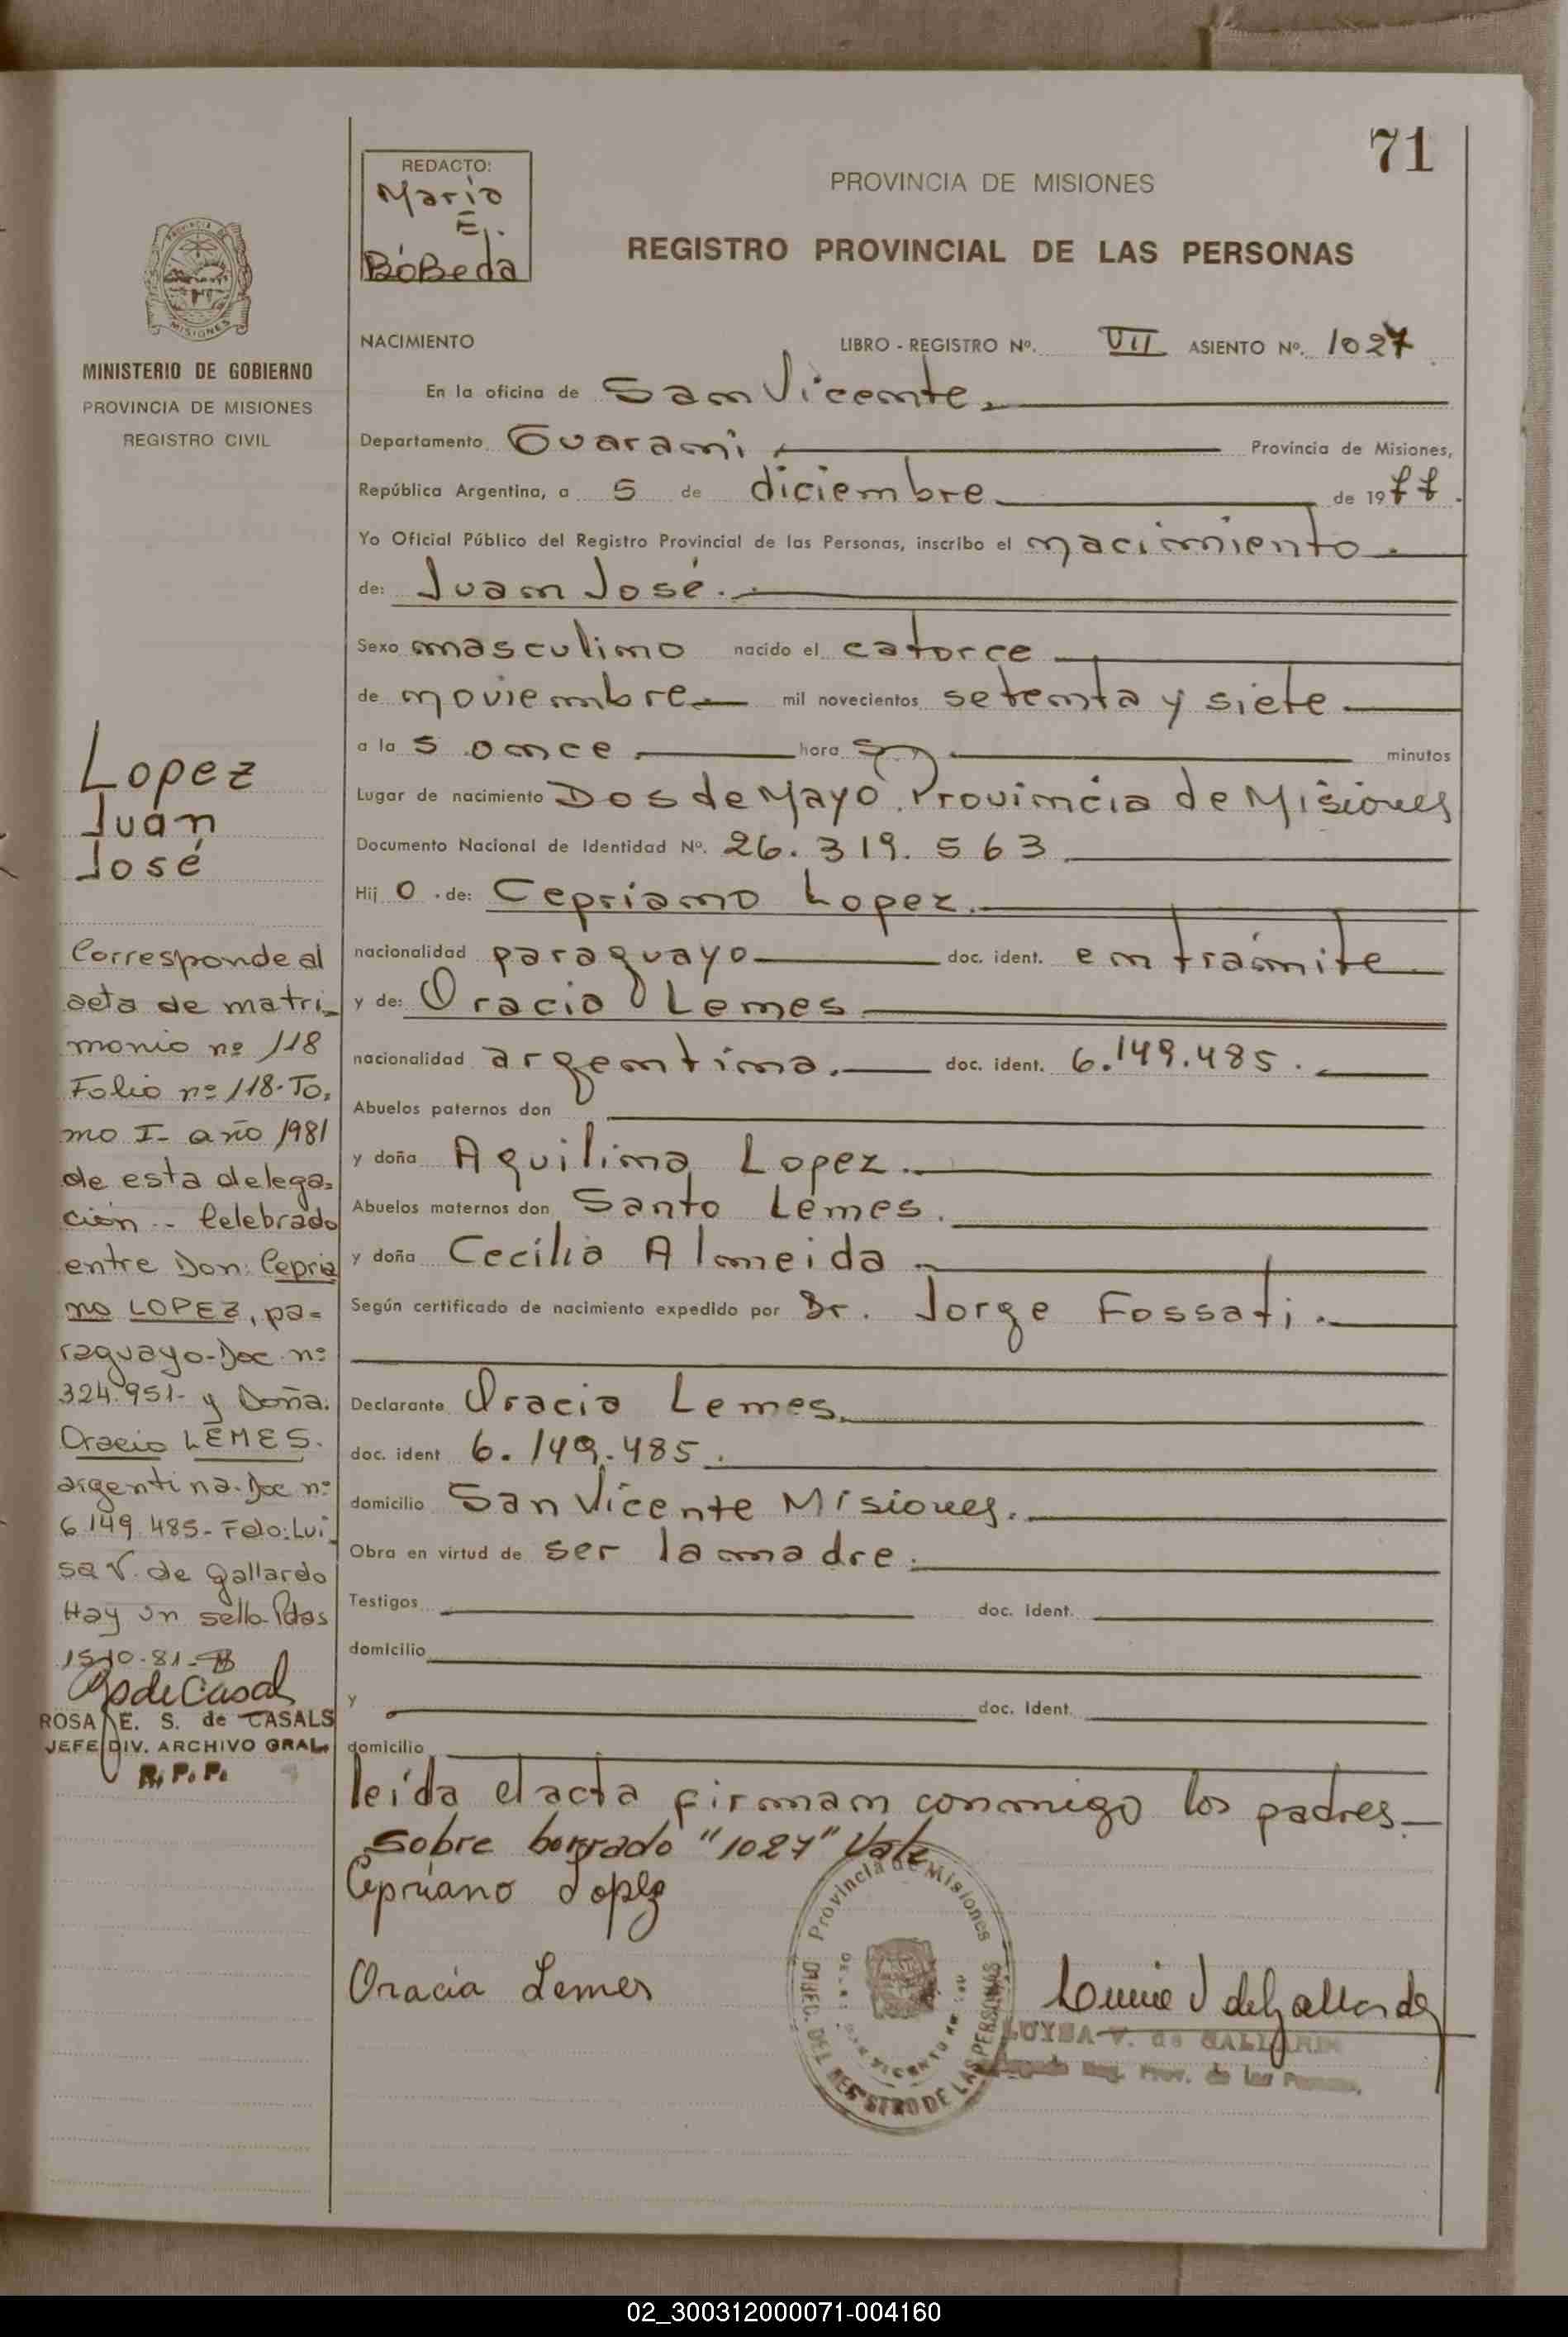 71
REDACTO:
Maria
E.
BóBeda
PROVINCIA DE MISIONES
REGISTRO PROVINCIAL DE LAS PERSONAS
MISIONES
MINISTERIO DE GOBIERNO
PROVINCIA DE MISIONES
REGISTRO CIVIL
NACIMIENTO LIBRO - REGISTRO Nº. VII ASIENTO Nº. 1027
En la oficina de San Vicente.
Departamento Guarani Provincia de Misiones,
República Argentina, a 5 de diciembre de 1977.
Yo Oficial Público del Registro Provincial de las Personas, inscribo el nacimiento.
de: Juan José.
Sexo masculino nacido el catorce
de noviembre mil novecientos setenta y siete
a la s once hora s minutos
Lugar de nacimiento Dos de Mayo. Provincia de Misiones
Documento Nacional de Identidad Nº. 26.319.563
Hij o de: Cepriano Lopez.
nacionalidad paraguayo doc. ident. en trámite
y de: Oracia Lemes
nacionalidad argentina. doc. ident. 6.149.485.
Abuelos paternos don
y doña Aquilina Lopez.
Abuelos maternos don Santo Lemes.
y doña Cecilia Almeida
Según certificado de nacimiento expedido por Dr. Jorge Fossati.
Declarante Oracia Lemes.
doc. ident 6.149.485.
domicilio San Vicente Misiones.
Obra en virtud de ser la madre.
Testigos doc. Ident.
domicilio
y doc. Ident.
domicilio
leída el acta firman conmigo los padres.
sobre borrado "1027" Vale
Cepriano Lopez
Oracia Lemes
Provincia de Misiones
DIREC. DEL REGISTRO DE LAS PERSONAS
LUYSA V. de GALLARDO
Reg. Prov. de las Personas
Lopez
Juan
José
Corresponde al
acta de matri-
monio nº 118
Folio nº 118-To-
mo I- año 1981
de esta delega-
ción.- Celebrado
entre Don: Cepria
no LOPEZ, pa-
raguayo-Doc nº
324.951- y Doña.
Oracia LEMES.
argentina-Doc nº
6.149 485- Fdo: Lui-
sa V. de Gallardo
Hay un sello-Pdas
15-10-81-
ROSA E. S. de CASALS
JEFE DIV. ARCHIVO GRAL.
R. P. P.
02_300312000071-004160